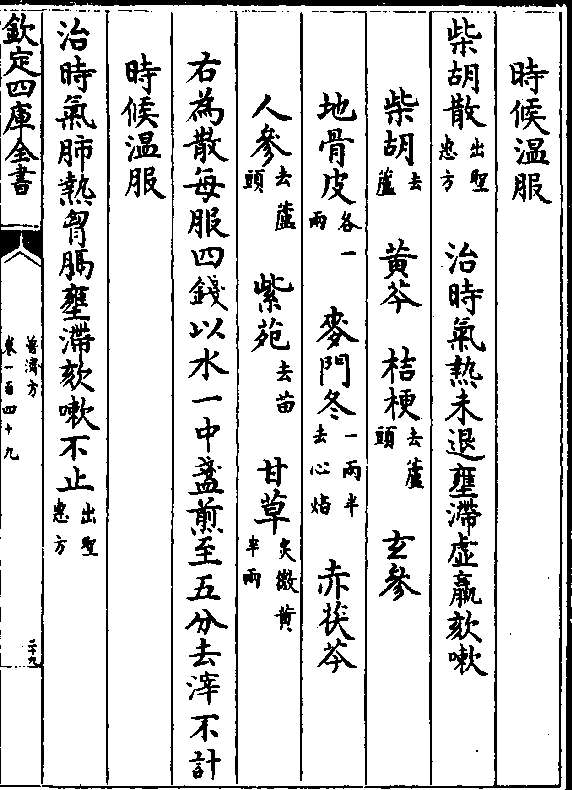 時候温服
柴胡散出聖惠方　治時氣熱未退壅滯虛羸欬嗽
柴胡去蘆　黄芩　桔梗去蘆頭　玄參
地骨皮各一兩　麥門冬一兩半去心焙　赤茯苓
人參去蘆頭　紫苑去苗　甘草炙微黄半兩
右為散每服四錢以水一中盞煎至五分去滓不計
時候温服
治時氣肺熱胷膈壅滯欬嗽不止出聖惠方
欽定四庫全書
普濟方
卷一百四十九
二十九